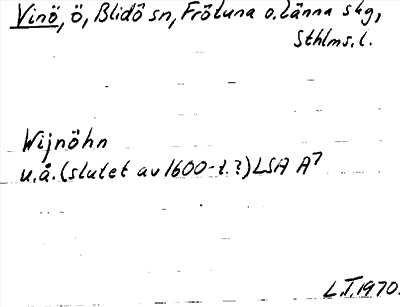 Vinö, ö, Blidö sn, Frötuna o. Länna skg,
Sthlms. l.
Wijnöhn
u.å. (slutet av 1600-t.?) LSA A7
L.I. 1970.